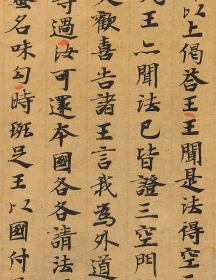 以上偈答王王聞是法得空三
九王亦聞法已皆證三空門
大歡喜告諸王言我為外道
等過汝可還本國各各請法
蜜名味句時斑足王以國付